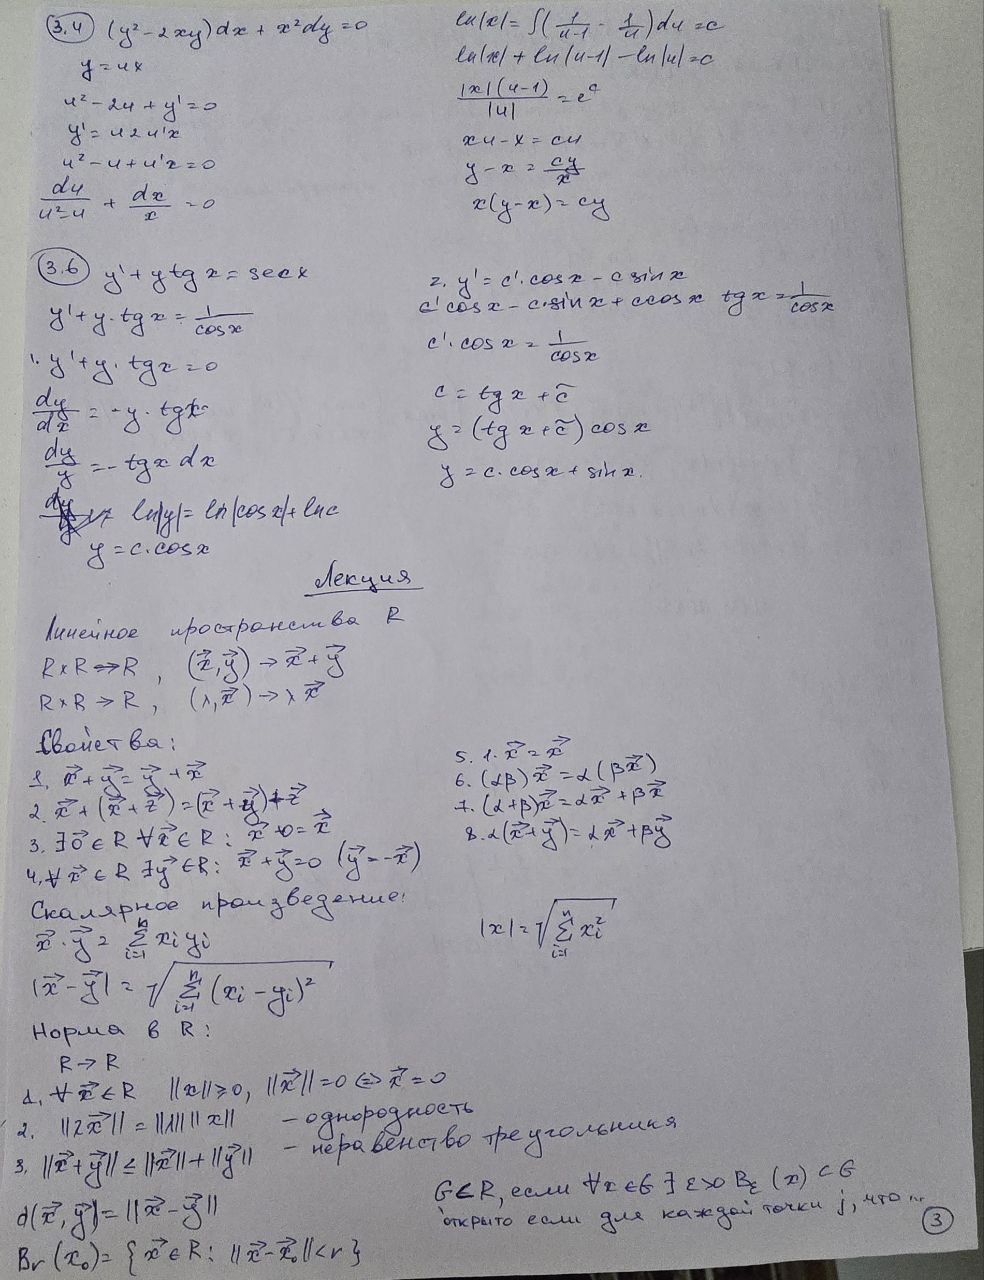 3.4 (y² - 2xy)dx + x²dy = 0
y = ux
u² - 2u + y' = 0
y' = u 2 u'x
u² - u + u'x = 0
du/(u² - u) + dx/x = 0
ln|x| = ∫(1/(u-1) - 1/u)du = c
ln|x| + ln|u-1| - ln|u| = c
|x|(u-1)/|u| = e^c
xu - x = cu
y - x = cy/x
x(y-x) = cy
3.6 y' + y tg x = sec x
y' + y · tg x = 1/cos x
1. y' + y · tg x = 0
dy/dx = -y · tg x
dy/y = -tg x dx
ln|y| = ln|cos x| + ln c
y = c · cos x
2. y' = c' · cos x - c sin x
c' cos x - c · sin x + c cos x tg x = 1/cos x
c' · cos x = 1/cos x
c = tg x + c̃
y = (tg x + c̃) cos x
y = c · cos x + sin x.
Лекция
Линейное пространства R
R×R → R, (x⃗, y⃗) → x⃗ + y⃗
R×R → R, (λ, x⃗) → λ x⃗
Свойства:
1. x⃗ + y⃗ = y⃗ + x⃗
2. x⃗ + (x⃗ + z⃗) = (x⃗ + y⃗) + z⃗
3. ∃ 0⃗ ∈ R ∀ x⃗ ∈ R : x⃗ + 0 = x⃗
4. ∀ x⃗ ∈ R ∃ y⃗ ∈ R : x⃗ + y⃗ = 0 (y⃗ = -x⃗)
5. 1 · x⃗ = x⃗
6. (αβ) x⃗ = α(β x⃗)
7. (α+β) x⃗ = α x⃗ + β x⃗
8. α(x⃗ + y⃗) = α x⃗ + β y⃗
Скалярное произведение:
x⃗ · y⃗ = Σ_{i=1}^{n} xi yi
|x⃗ - y⃗| = √(Σ_{i=1}^{n} (xi - yi)²)
|x| = √(Σ_{i=1}^{n} xi²)
Норма в R:
R → R
1. ∀ x⃗ ∈ R ||x|| ≥ 0, ||x⃗|| = 0 ⇔ x⃗ = 0
2. ||λ x⃗|| = ||λ|| ||x|| - однородность
3. ||x⃗ + y⃗|| ≤ ||x⃗|| + ||y⃗|| - неравенство треугольника
d(x⃗, y⃗) = ||x⃗ - y⃗||
Br(x₀) = { x⃗ ∈ R : ||x⃗ - x⃗₀|| < r }
G ⊂ R, если ∀ x ∈ G ∃ ε > 0 Bε(x) ⊂ G
открыто если для каждой точки j, что ...
3